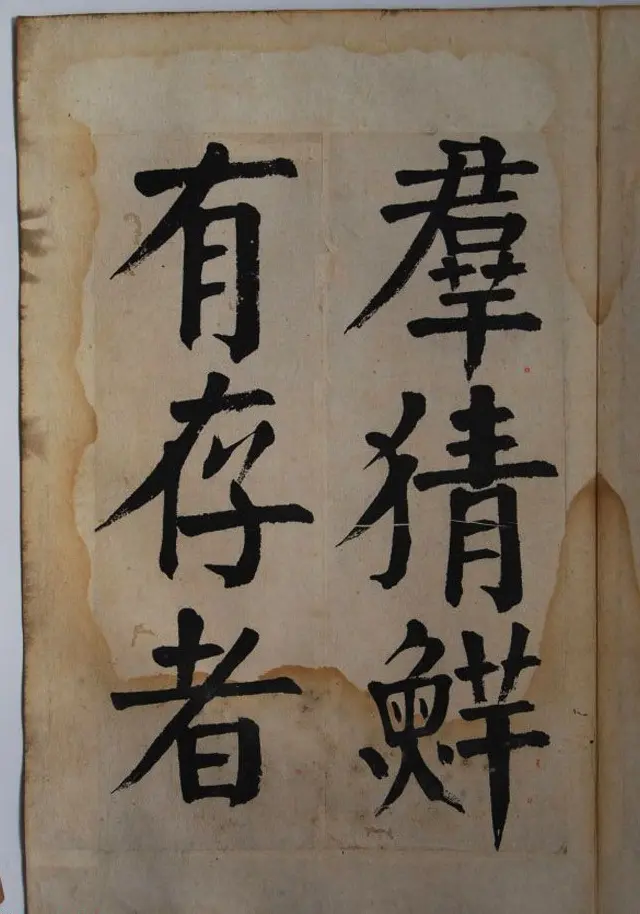 羣猜鮮
有存者